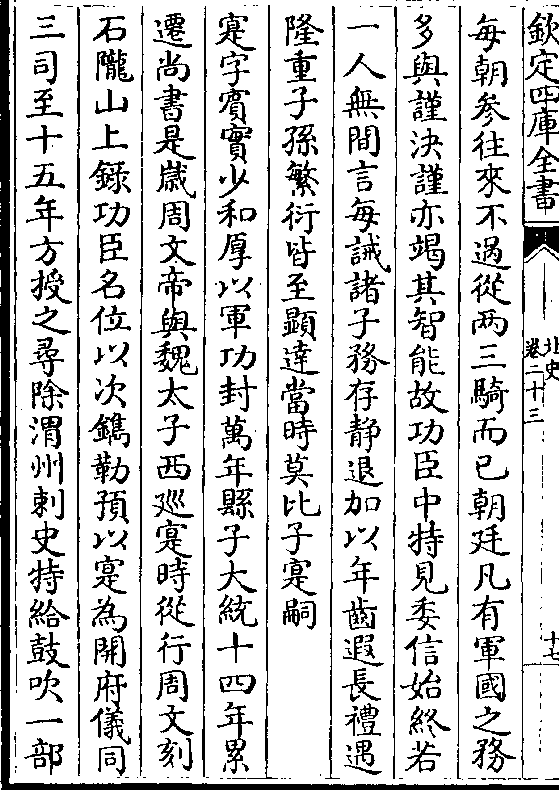 欽定四庫全書
北史
卷二十三
十七
每朝參往來不過從两三騎而已朝廷凡有軍國之務
多與謹決謹亦竭其智能故功臣中特見委信始終若
一人無間言每誡諸子務存静退加以年齒遐長禮遇
隆重子孫繁衍皆至顯達當時莫比子寔嗣
寔字賓實少和厚以軍功封萬年縣子大統十四年累
遷尚書是歲周文帝與魏太子西廵寔時從行周文刻
石隴山上錄功臣名位以次鐫勒預以寔為開府儀同
三司至十五年方授之尋除渭州刺史特給鼓吹一部